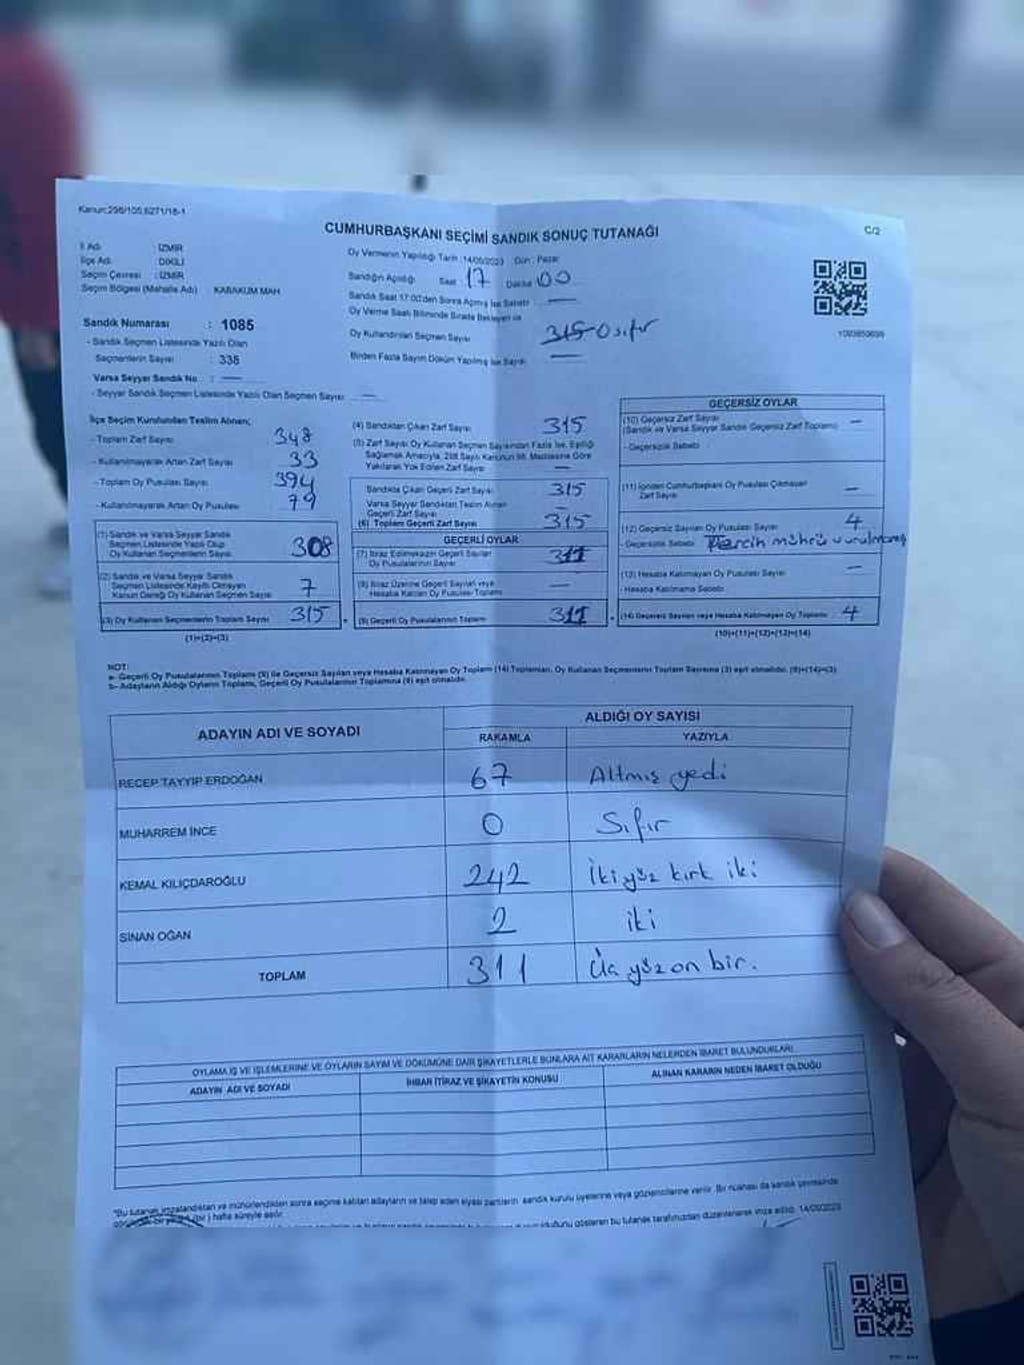 Kanun:298/105,6271/18-1
C/2
CUMHURBAŞKANI SEÇİMİ SANDIK SONUÇ TUTANAĞI
İl Adı : İZMİR
İlçe Adı : DİKİLİ
Seçim Çevresi : İZMİR
Seçim Bölgesi (Mahalle Adı) KABAKUM MAH
Sandık Numarası : 1085
- Sandık Seçmen Listesinde Yazılı Olan
Seçmenlerin Sayısı : 338
Varsa Seyyar Sandık No : —
- Seyyar Sandık Seçmen Listesinde Yazılı Olan Seçmen Sayısı: —
Oy Vermenin Yapıldığı Tarih :14/05/2023 Gün : Pazar
Sandığın Açıldığı Saat 17 Dakika 00
Sandık Saat 17:00'den Sonra Açılmış İse Sebebi —
Oy Verme Saati Bitiminde Sırada Bekleyen ve
Oy Kullandırılan Seçmen Sayısı 315 0 sıfır
Birden Fazla Sayım Döküm Yapılmış İse Sayısı —
İlçe Seçim Kurulundan Teslim Alınan;
- Toplam Zarf Sayısı 348
- Kullanılmayarak Artan Zarf Sayısı 33
- Toplam Oy Pusulası Sayısı 394
- Kullanılmayarak Artan Oy Pusulası 79
(1) Sandık ve Varsa Seyyar Sandık
Seçmen Listesinde Yazılı Olup
Oy Kullanan Seçmenlerin Sayısı 308
(2) Sandık ve Varsa Seyyar Sandık
Seçmen Listesinde Kayıtlı Olmayan
Kanun Gereği Oy Kullanan Seçmen Sayısı 7
(3) Oy Kullanan Seçmenlerin Toplam Sayısı 315
(1)+(2)=(3)
(4) Sandıktan Çıkan Zarf Sayısı 315
(5) Zarf Sayısı Oy Kullanan Seçmen Sayısından Fazla İse, Eşitliği
Sağlamak Amacıyla, 298 Sayılı Kanunun 98. Maddesine Göre
Yakılarak Yok Edilen Zarf Sayısı —
Sandıkta Çıkan Geçerli Zarf Sayısı 315
Varsa Seyyar Sandıktan Teslim Alınan
Geçerli Zarf Sayısı
(6) Toplam Geçerli Zarf Sayısı 315
GEÇERLİ OYLAR
(7) İtiraz Edilmeksizin Geçerli Sayılan
Oy Pusulalarının Sayısı 311
(8) İtiraz Üzerine Geçerli Sayılan veya
Hesaba Katılan Oy Pusulaları Toplamı —
(9) Geçerli Oy Pusulalarının Toplamı 311
GEÇERSİZ OYLAR
(10) Geçersiz Zarf Sayısı —
(Sandık ve Varsa Seyyar Sandık Geçersiz Zarf Toplamı)
- Geçersizlik Sebebi
(11) İçinden Cumhurbaşkanı Oy Pusulası Çıkmayan
Zarf Sayısı —
(12) Geçersiz Sayılan Oy Pusulası Sayısı 4
- Geçersizlik Sebebi Tercih mührü vurulmamış
(13) Hesaba Katılmayan Oy Pusulası Sayısı —
- Hesaba Katılmama Sebebi
(14) Geçersiz Sayılan veya Hesaba Katılmayan Oy Toplamı 4
(10)+(11)+(12)+(13)=(14)
NOT:
a- Geçerli Oy Pusulalarının Toplamı (9) ile Geçersiz Sayılan veya Hesaba Katılmayan Oy Toplamı (14) Toplamları, Oy Kullanan Seçmenlerin Toplam Sayısına (3) eşit olmalıdır. (9)+(14)=(3)
b- Adayların Aldığı Oyların Toplamı, Geçerli Oy Pusulalarının Toplamına (9) eşit olmalıdır.
ADAYIN ADI VE SOYADI
ALDIĞI OY SAYISI
RAKAMLA YAZIYLA
RECEP TAYYİP ERDOĞAN 67 Altmış yedi
MUHARREM İNCE 0 Sıfır
KEMAL KILIÇDAROĞLU 242 İkiyüz kırk iki
SİNAN OĞAN 2 iki
TOPLAM 311 Üç yüz on bir.
OYLAMA İŞ VE İŞLEMLERİNE VE OYLARIN SAYIM VE DÖKÜMÜNE DAİR ŞİKAYETLERLE BUNLARA AİT KARARLARIN NELERDEN İBARET BULUNDUKLARI
ADAYIN ADI VE SOYADI İHBAR İTİRAZ VE ŞİKAYETİN KONUSU ALINAN KARARIN NEDEN İBARET OLDUĞU
"Bu tutanak imzalandıktan ve mühürlendikten sonra seçime katılan adayların ve talep eden siyasi partilerin sandık kurulu üyelerine veya gözlemcilerine verilir. Bir nüshası da sandık çevresinde
hafta süreyle asılır.
olduğunu gösteren bu tutanak tarafımızdan düzenlenerek imza edildi. 14/05/2023